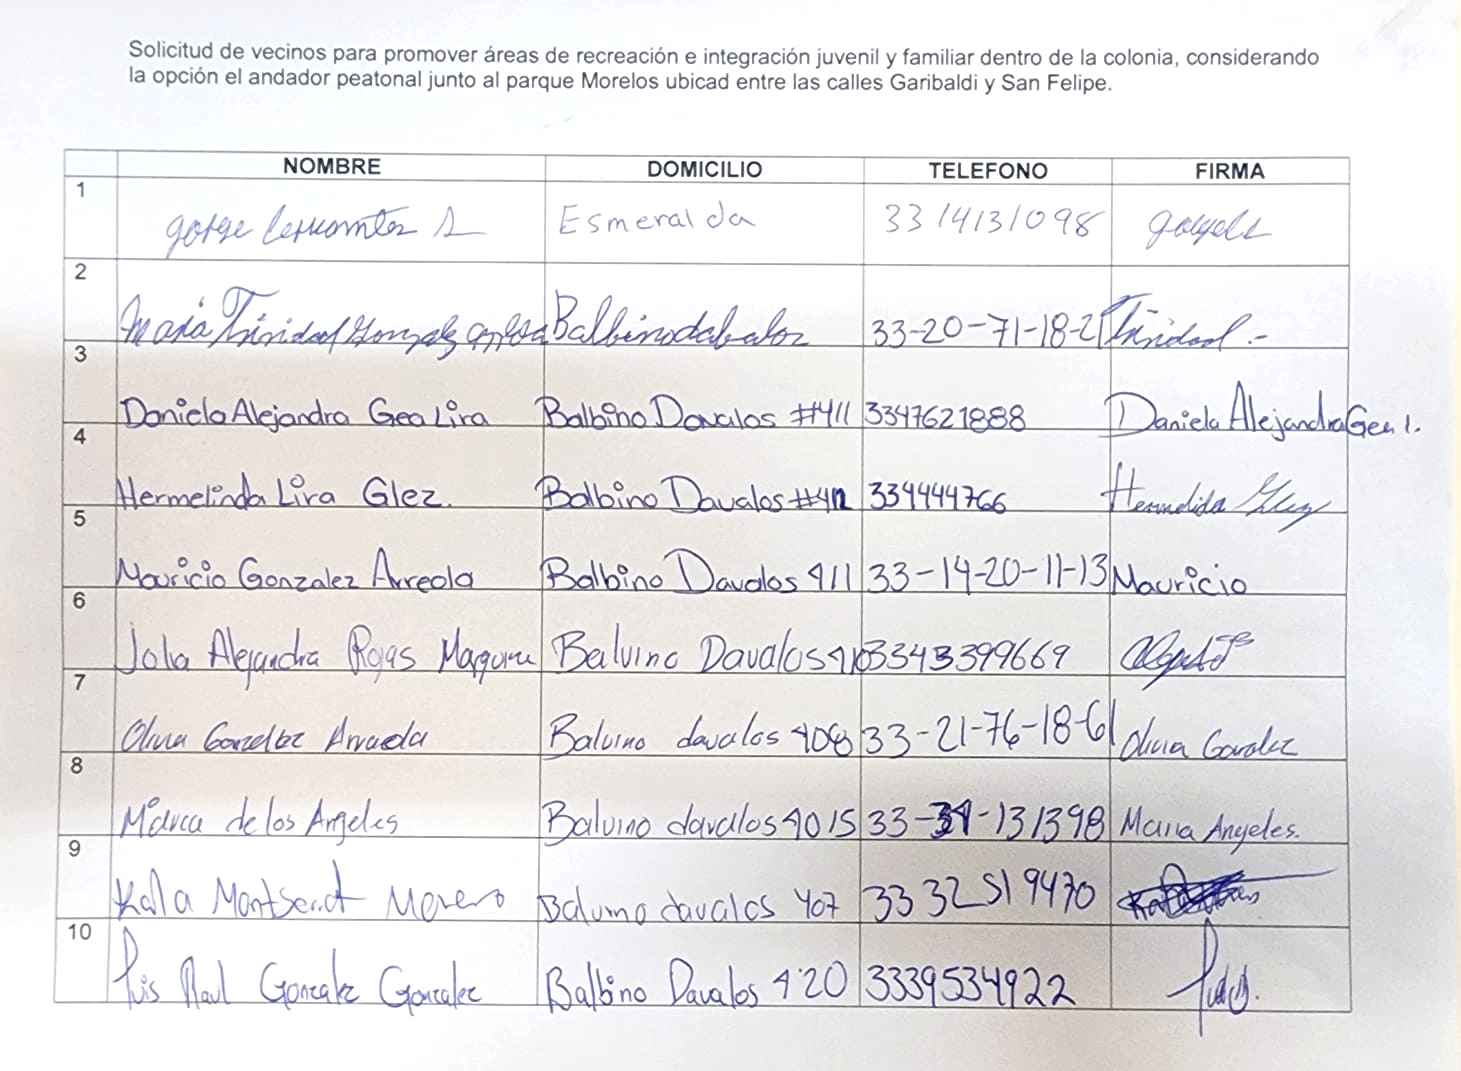 Solicitud de vecinos para promover áreas de recreación e integración juvenil y familiar dentro de la colonia, considerando
la opción el andador peatonal junto al parque Morelos ubicad entre las calles Garibaldi y San Felipe.
NOMBRE DOMICILIO TELEFONO FIRMA
1 Esmeralda 33 14131098
2 Maria Trinidad Gonzalez Balbinodabalos 33-20-71-18-21 Trinidad.-
3 Daniela Alejandra Gea Lira Balbino Davalos #411 3347621888 Daniela Alejandra Gea l.
4 Hermelinda Lira Glez. Balbino Davalos 334444766
5 Mauricio Gonzalez Arreola Balbino Davalos 411 33-14-20-11-13 Mauricio
6 Alejandra Rojas Balvino Davalos 3343399669
7 Balvino davalos 408 33-21-76-18-61 Olivia
8 de los Angeles Balvino davalos 4015 33-31-131398 Maria Angeles.
9 Karla Montserrat Moreno davalos 407 33 32519470
10 Luis Raul Gonzalez Gonzalez Balbino Davalos 420 3339534922